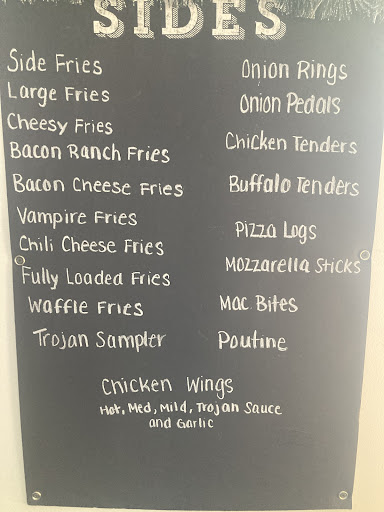 SIDES
Side Fries
Large Fries
Cheesy Fries
Bacon Ranch Fries
Bacon Cheese Fries
Vampire Fries
Chili Cheese Fries
Fully Loaded Fries
Waffle Fries
Trojan Sampler
Onion Rings
Onion Pedals
Chicken Tenders
Buffalo Tenders
Pizza Logs
Mozzarella Sticks
Mac Bites
Poutine
Chicken Wings
Hot, Med, Mild, Trojan Sauce
and Garlic